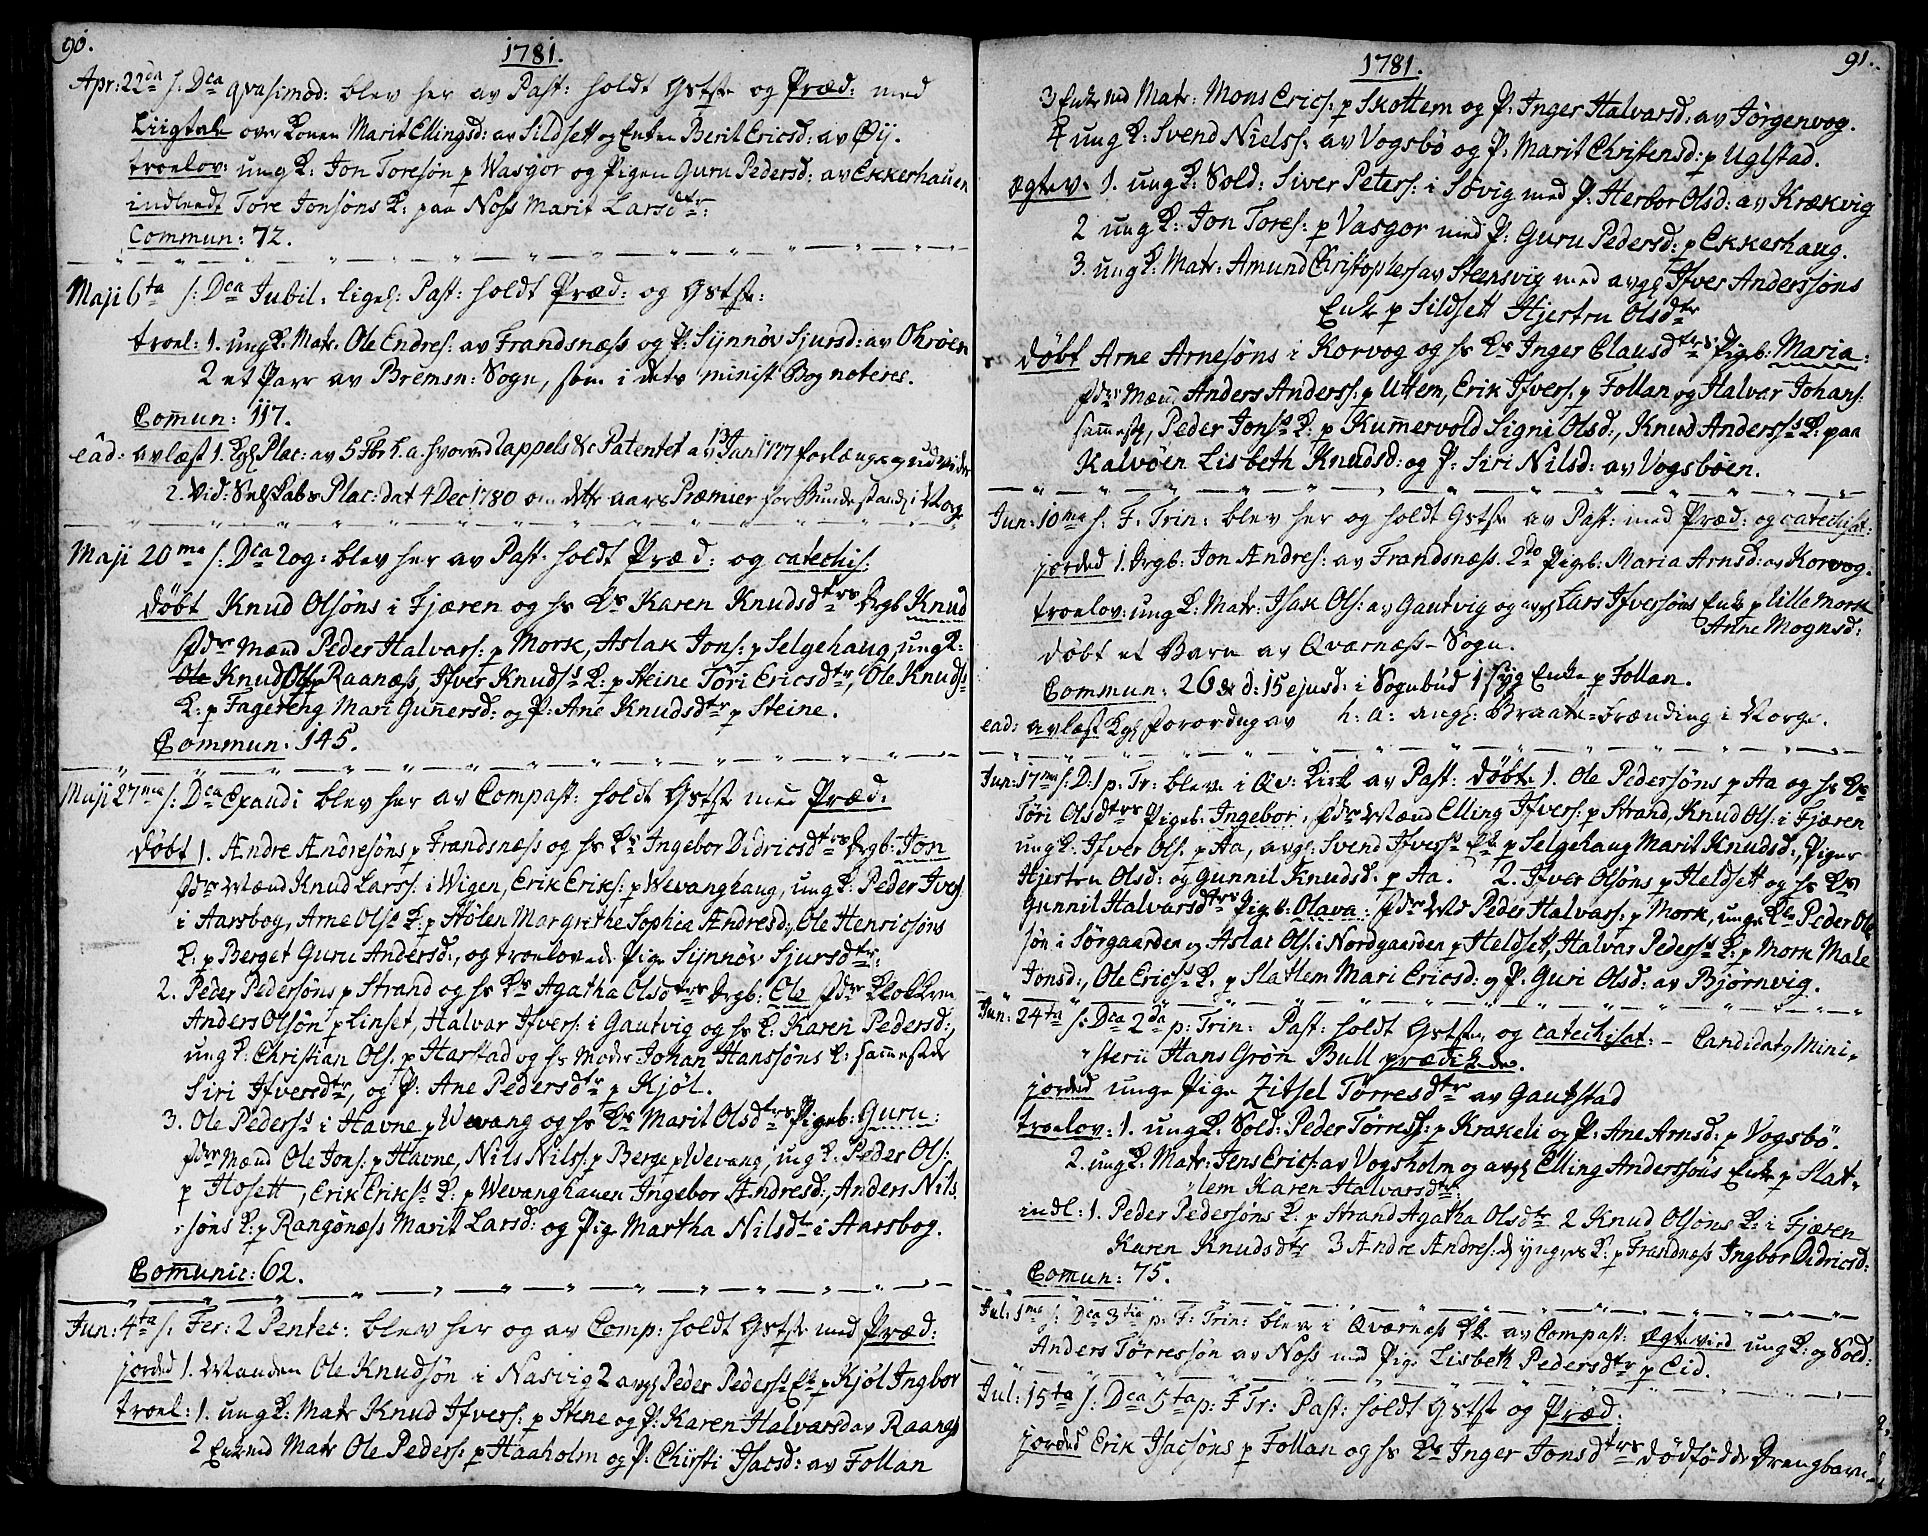 90.
1781.
Apr: 22da s: Dca qvasimod: blev her av Past: holdt Gstste og Præd: med
Liigtale over Konen Marit Ellingsd: av Sildsett og Enken Berit Ericsd: av Øÿ.
troelov: ung K: Jon Toresøn p Wasgor og Pigen Guru Pedersd: av Ekkerhauen
indleedt Tore Jonsøns K: paa Noss Marit Larsdtr:
Commun: 72.
Maji 6ta s: Dca Jubil: liges: Past: holdt Præd: og Gstste:
troel: 1. ung K: Matr: Ole Endres: av Frandsnæss og P: Synnøv Sjursd: av Ohrøen
2 et Parr av Bremsn: Sogn, som i dets minist Bog noteres.
Comun: 117.
eâd: avlæst 1. Kgl Plac: av 5 Fbr h. a. hvorved Cappels &c Patentet av 13 Jan 1777 forlænges og udvider
2. Vid: Selskabs Plac: dat 4 Dec 1780 om dette aars Præmier for Bundestand i Norge
Maji 20me s: Dca Rog: blev her av Past: holdt Præd: og catechis:
døbt Knud Olsøns i Fjæren og hs Ks Karen Knudsdtrs Drgb Knud
fdr Mænd Peder Halvars: p Mork, Aslak Jons: p Selgehaug, ung K:
Ole Knud Ols p Raanæss, Ifver Knudss K: p Steine Tori Ericsdtr, Ole Knuds
K: p Fagereng Mari Gunersd: og P: Ane Knudsdtr p Steine.
Commun: 145.
Maji 27ma s: Dca Exaudi blev her av Compast: holdt Gstste med Præd:
døbt 1. Andre Andresøns p Frandsnæss og hs Ks Ingebor Didricsdtrs Drgb: Jon
fdr Mænd Knud Larss: i Wigen, Erik Eriks: p Wevanghaug, ung K: Peder Ivers
i Aarsbog, Arne Olss K: p Stølen Margrethe Sophia Andresd:, Ole Henricsøns
K: p Berget Guru Andersd:, og troelovede Pige Synnøv Sjursdtr:
2. Peder Pedersøns p Strand og hs Ks Agatha Olsdtrs Drgb: Ole fdr Klokkeren
Anders Olsøn p Linset, Halvar Ifvers: i Gautvig og hs K: Karen Pedersd:,
ung K: Christian Ols: p Harstad og hs Moder Johan Hanssøns K: sammestede
Siri Ifversdtr, og P: Ane Pedersdtr p Kjøl.
3. Ole Pederss i Havne p Wevang og hs Ks Marit Olsdtrs Pigeb: Guru:
fdr Mænd Ole Jons: p Havne, Nils Nilss: p Berge p Wevang, ung K: Peder Ols:
p Hosett, Erik Erikss K: p Wevanghauen Ingebor Andresd:, Anders Nils
søns K: p Rangønæss Marit Larsd: og Pige Martha Nilsdtr i Aarsbog.
Comunic: 62.
Jun: 4ta s: Fer: 2 Pentec: blev her og av Comp: holdt Gstste med Præd:
jorded 1. Manden Ole Knudsøn i Nasvig 2 avgl Peder Pederss Ek p Kjøl Ingbor
troel: 1. ung K: Matr Knud Ifvers: p Stene og P: Karen Halvarsd av Raanæs
2 Enkemd Matr Ole Peders: p Haaholm og P: Chirsti Isacsd: av Follan
91.
1781.
3 Enkemd Matr: Mons Erics: p Skottem og P: Inger Halvarsd: av Jørgenvog.
4 ung K: Svend Nielss: av Vogsbø og P: Marit Christensd: p Uglstad.
Ægtev. 1. ung K: Sold: Siver Peters: i Søvig med P: Herbor Olsd: av Krækvig
2 ung K: Jon Tores: p Vasgor med P: Guru Pedersd: p Ekkerhaug.
3. ung K: Matr: Amund Christophers av Steensvig med avgl Ifver Anderssøns
Enke p Sildsett Hjertru Olsdtr
døbt Arne Arnesøns i Korvog og hs Ks Inger Clausdtrs Pigb: Maria:
fdr Mæn Anders Anderss: p Uttem, Erik Ifvers: p Follan og Halvar Johans:
samest, Peder Jonss K: p Kumervold Signi Olsd:, Knud Anderss K: paa
Kalvøen Lisbeth Knudsd: og P: Siri Nilsd: av Vogsbøen.
Jun: 10ma s: F. Trin: blev her og holdt Gstste av Past: med Præd: og catechisat:
jorded 1. Drgb: Jon Andres: av Frandsnæss. 2do Pigeb: Maria Arnsd: av Korvog.
troelov: ung K: Matr: Isak Ols: av Gautvig og avgl Lars Ifversøns Enke p Lille Mork
Anne Mognsd:
døbt et Barn av Qværnæss-Sogn.
Commun: 26 & d: 15 ejusd: i Sognebud 1 syg Enke p Follan.
ead: avlæst Kgl forordng av h: a: angl: Braate-brænding i Norge.
Jun: 17ma s: D: 1 p: Tr: blev i Qv: Kirk av Past: døbt 1. Ole Pedersøns p Aa og hs Ks
Tøri Olsdtrs Pigeb. Ingebor. fdr Mænd Elling Ifvers: p Strand, Knud Ols: i Fjæren
ung K: Ifver Ols: p Aa, avgl: Svend Ifverss Ek p Selgehaug Marit Knudsd:, Piger
Hjertru Olsd: og Gunnil Knudsd: p Aa. 2. Ifver Olsøns p Heldsett og hs Ks
Gunnil Halvarsdtrs Pigb. Olava: fdr Md Peder Halvars: p Mork, unge Kle Peder Ole
søn i Sørgaarden og Aslac Ols: i Nordgaarden p Heldsett, Halvar Pederss K: p Mork Male
Jonsd:, Ole Ericss K. p Slatlem Mari Ericsd: og P: Guri Olsd: av Bjørnvig.
Jun: 24ta s: Dca 2da p: Trin: Past: holdt Gstste, og catechisat: - Candidat Mini-
sterii Hans Grøn Bull prædikede.
jorded unge Pige Zitsel Tørresdtr av Gautstad
troelov: 1. ung K: Sold: Peder Tørress: p Krakeli og P: Ane Arnsd: p Vogsbø.
2. ung K: Matr: Jens Erics: av Vogsholm og avgl Elling Anderssøns Enke p Slat-
lem Karen Halvarsdtr:
indl: 1. Peder Pedersøns K: p Strand Agatha Olsdtr 2 Knud Olsøns K: i Fjæren
Karen Knudsdtr 3 Andre Andres: d yngres K: p Frandnæss Ingbor Didricsd:
Comun: 75.
Jul: 1ma s: Dca 3tia p: F: Trin: blev i Qværnæss Kk av Compast: Ægtevied ung K: og Sold:
Anders Tørressøn av Noss med Pige Lisbeth Pedersdtr p Eid.
Jul: 15ta s: Dca 5ta p: F Tr: Past: holdt Gstste og Præd:
jorded Erik Isacsøns p Follan og hs Ks Inger Jonsdtrs dødfødde Drengbarn